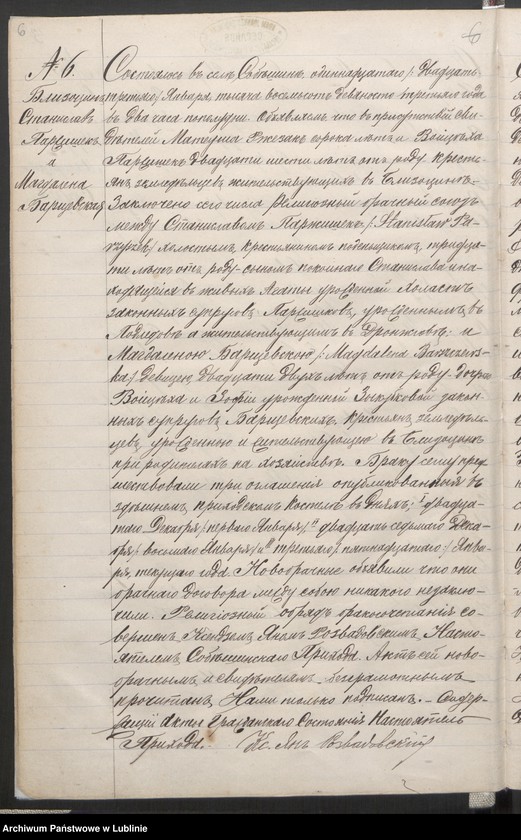 6
6
№ 6.
Близоцинъ
Станиславъ
Паржишекъ
и
Магдалена
Барщевская
Состоялось въ селѣ Собѣшинѣ одиннадцатаго /: двадцать
третьяго / Января тысяча восемьсотъ девяносто третьяго года
въ два часа пополудни. Объявляемъ что въ присутствіи сви-
дѣтелей Матеуша сорока лѣтъ и Войцѣха
Паржишекъ двадцати шести лѣтъ отъ роду кресть-
янъ земледѣльцевъ жительствующихъ въ Близоцинѣ.
Заключенъ сего числа религіозный брачный союзъ
между Станиславомъ Паржишекъ /: Stanisław Pa-
rzyszek / холостымъ, крестьяниномъ поденщикомъ, тридца-
ти лѣтъ отъ роду сыномъ покойнаго Станислава и на-
ходящейся въ живыхъ Агаты урожденной
законныхъ супруговъ Паржишковъ, урожденнымъ въ
а жительствующимъ въ и
Магдаленою Барщевскою /: Magdalena Barszczews-
ka / девицею, двадцати двухъ лѣтъ отъ роду дочерью
Войцѣха и Зофіи урожденной закон-
ныхъ супруговъ Барщевскихъ, крестьянъ земледѣль-
цевъ, урожденною и жительствующею въ Близоцинѣ
при родителяхъ на хозяйствѣ. Браку сему пред-
шествовали три оглашенія опубликованныя въ
здѣшнемъ приходскомъ костелѣ въ дняхъ: I двадца-
таго Декабря / перваго Января / II двадцать седьмаго Дека-
бря / восьмаго Января / и III третьяго / пятнадцатаго / Янва-
ря, текущаго года. Новобрачные объявили что они
брачнаго договора между собою никакого незаклю-
чили. Религіозный обрядъ бракосочетанія со-
вершенъ Ксендзомъ Яномъ Розвадовскимъ, Насто-
ятелемъ Собѣшинскаго Прихода. Актъ сей ново-
брачнымъ и свидѣтелямъ неграмотнымъ
прочитанъ Нами только подписанъ. – Содер-
жащій Акты Гражданскаго Состоянія Настоятель
Прихода. Кс. Янъ Розвадовскій
Archiwum Państwowe w Lublinie